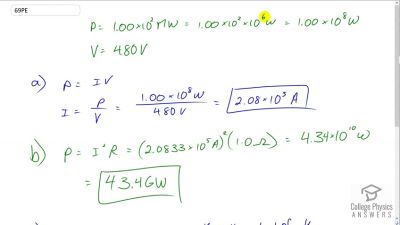 69PE
P = 1.00 × 10² MW = 1.00 × 10² × 10⁶ W = 1.00 × 10⁸ W
V = 480 V
a) P = IV
I = P/V = 1.00 × 10⁸ W / 480 V = 2.08 × 10⁵ A
b) P = I²R = (2.0833 × 10⁵ A)² (1.0 Ω) = 4.34 × 10¹⁰ W
= 43.4 GW
College Physics
ANSWERS